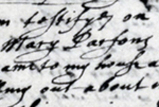 testifyes on
Mary Parsons
came to my house a
my out about